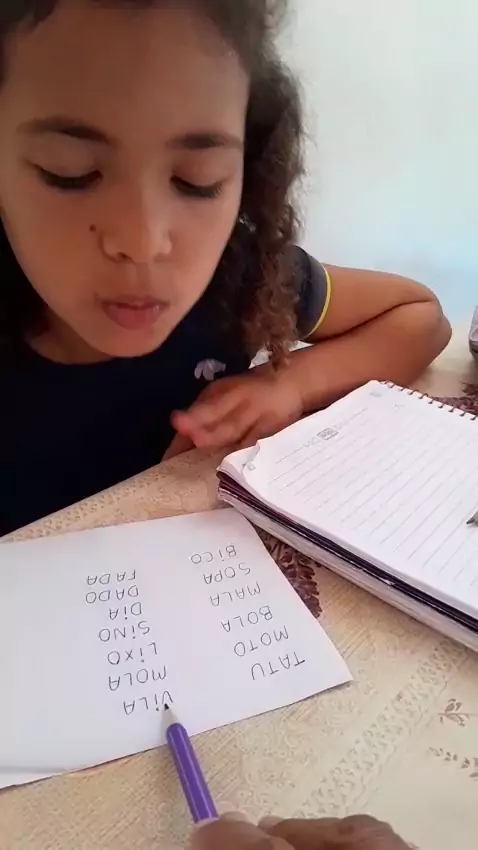 TATU
MOTO
BOLA
MALA
SOPA
BiCO
ViLA
MOLA
LiXO
SiNO
DiA
DADO
FADA